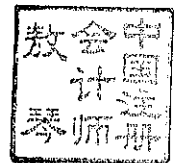 中国注册
会计师
敖琴